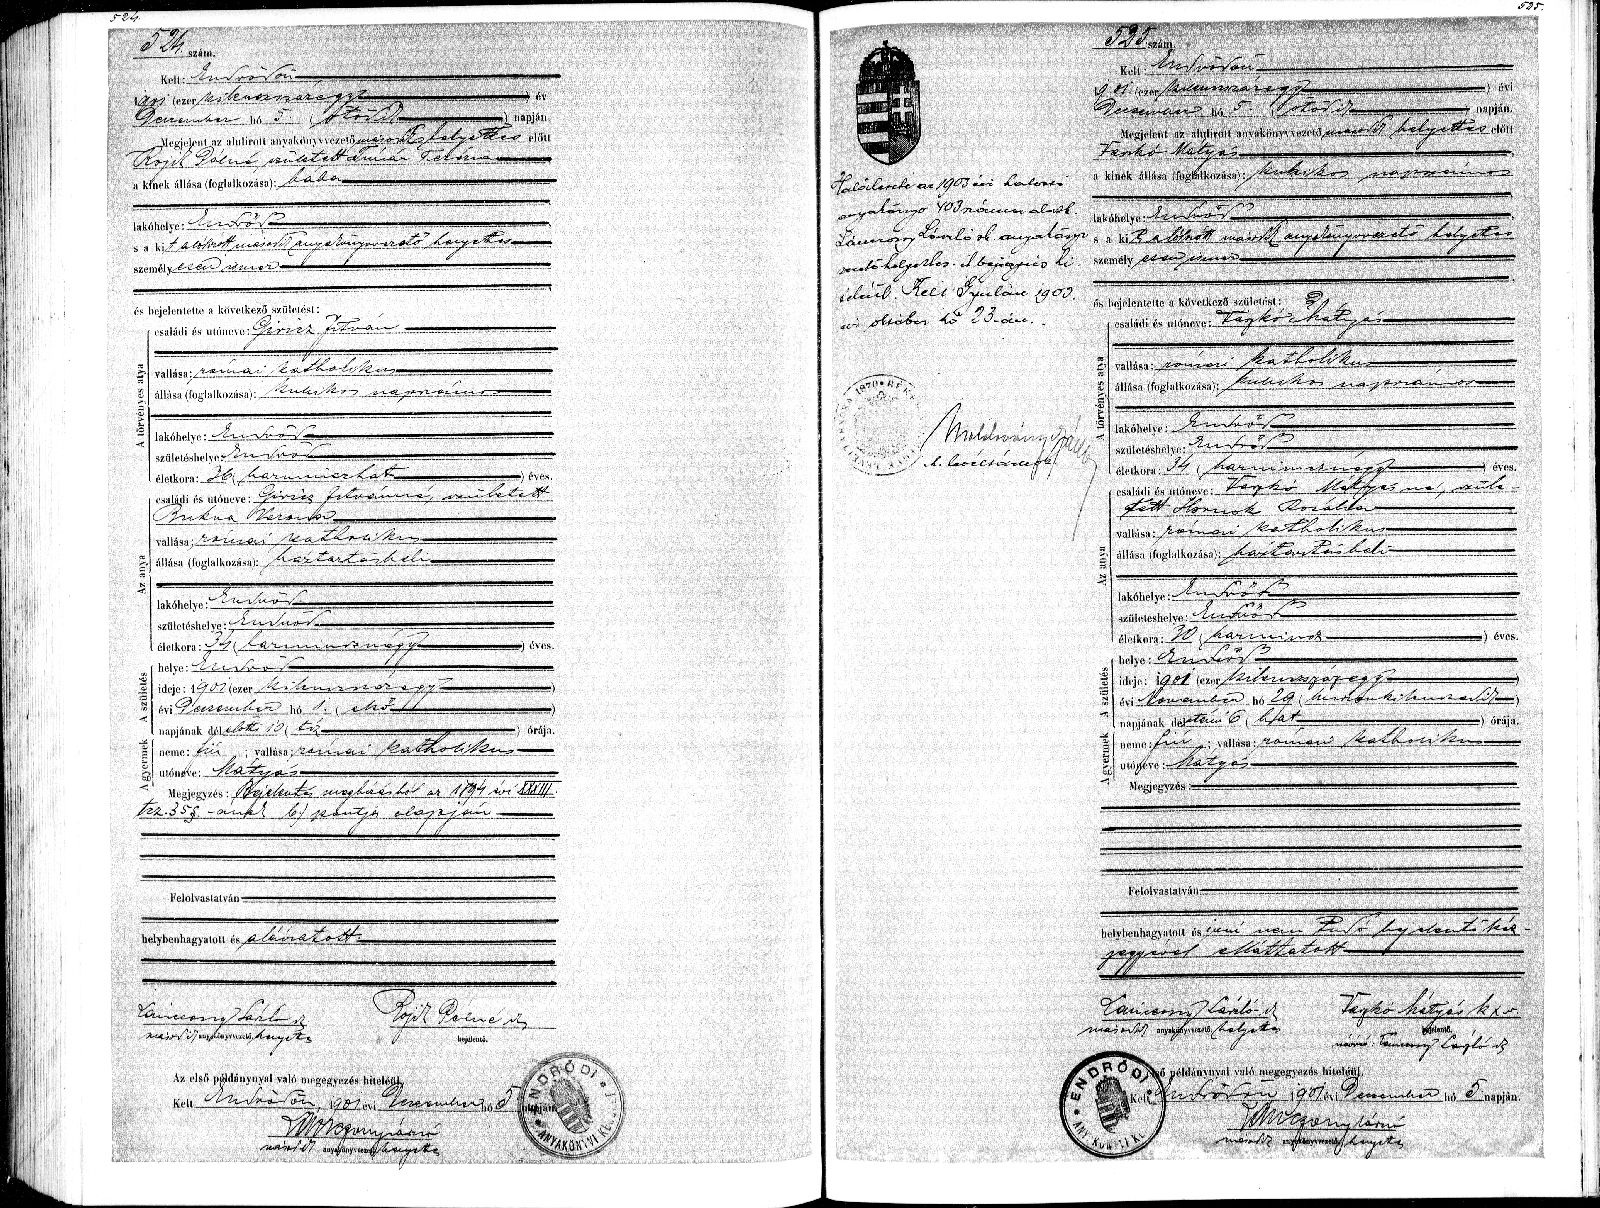 524.
524. szám.
Kelt: Endrődön
1901 (ezer kilencszázegy) év
December hó 5 (ötödik) napján.
Megjelent az alulirott anyakönyvvezető másod helyettes előtt
Rojik Pálné, született Timár Terézia
a kinek állása (foglalkozása): bába
lakóhelye: Endrőd
s a kit alulirott másod anyakönyvvezető helyettes
személyesen ismer
és bejelentette a következő születést:
A törvényes atya
családi és utóneve: Giricz István
vallása: római katholikus
állása (foglalkozása): kubikos napszámos
lakóhelye: Endrőd
születéshelye: Endrőd
életkora: 36 (harminchat) éves.
Az anya
családi és utóneve: Giricz Istvánné, született
Bukva Veronka
vallása: római katholikus
állása (foglalkozása): háztartásbeli
lakóhelye: Endrőd
születéshelye: Endrőd
életkora: 34 (harmincznégy) éves.
A születés
helye: Endrőd
ideje: 1901 (ezer kilencszázegy)
évi December hó 1. (első)
napjának délelőtti 10 (tíz) órája.
A gyermek
neme: fiú; vallása: római katholikus
utóneve: Mátyás
Megjegyzés: Bejelentés megbízásból az 1894 évi XXXIII.
tcz. 35 §-ának b) pontja alapján
Felolvastatván
helybenhagyatott és aláiratott.
Lánczony László sk Rojik Pálné sk
másod anyakönyvvezető helyettes bejelentő.
Az első példánynyal való megegyezés hiteléül,
Kelt Endrődön 1901 évi December hó 5 napján.
másod anyakönyvvezető helyettes
ENDRŐDI
ANYAKÖNYVI
525.
525. szám.
Kelt: Endrődön
1901 (ezer kilencszázegy) évi
December hó 5 (ötödik) napján.
Megjelent az alulirott anyakönyvvezető másod helyettes előtt
Vaskó Mátyás
a kinek állása (foglalkozása): kubikos napszámos
lakóhelye: Endrőd
s a kit alulirott másod anyakönyvvezető helyettes
személyesen ismer
és bejelentette a következő születést:
A törvényes atya
családi és utóneve: Vaskó Mátyás
vallása: római katholikus
állása (foglalkozása): kubikos napszámos
lakóhelye: Endrőd
születéshelye: Endrőd
életkora: 34 (harmincznégy) éves.
Az anya
családi és utóneve: Vaskó Mátyásné, szüle-
tett Hornok Rozália
vallása: római katholikus
állása (foglalkozása): háztartásbeli
lakóhelye: Endrőd
születéshelye: Endrőd
életkora: 30 (harmincz) éves.
A születés
helye: Endrőd
ideje: 1901 (ezer kilenczszázegy)
évi November hó 29 (huszonkilenczedik)
napjának délután 6 (hat) órája.
A gyermek
neme: fiú; vallása: római katholikus
utóneve: Mátyás
Megjegyzés:
Felolvastatván
helybenhagyatott és irni nem tudó bejelentő kéz-
jegyével elláttatott
Lánczony László sk Vaskó Mátyás k x v
másod anyakönyvvezető helyettes bejelentő.
Lánczony László sk
első példánynyal való megegyezés hiteléül,
Kelt Endrődön 1901 évi December hó 5 napján.
másod anyakönyvvezető helyettes
ENDRŐDI
ANYAKÖNYVI
Halálesete az 1903 évi halotti
anyakönyv 403 szám alatt.
Lánczony László sk anyakönyv
vezető helyettes. A bejegyzés hi-
teléül. Kelt Gyulán 1903.
évi október hó 23-án.
1870